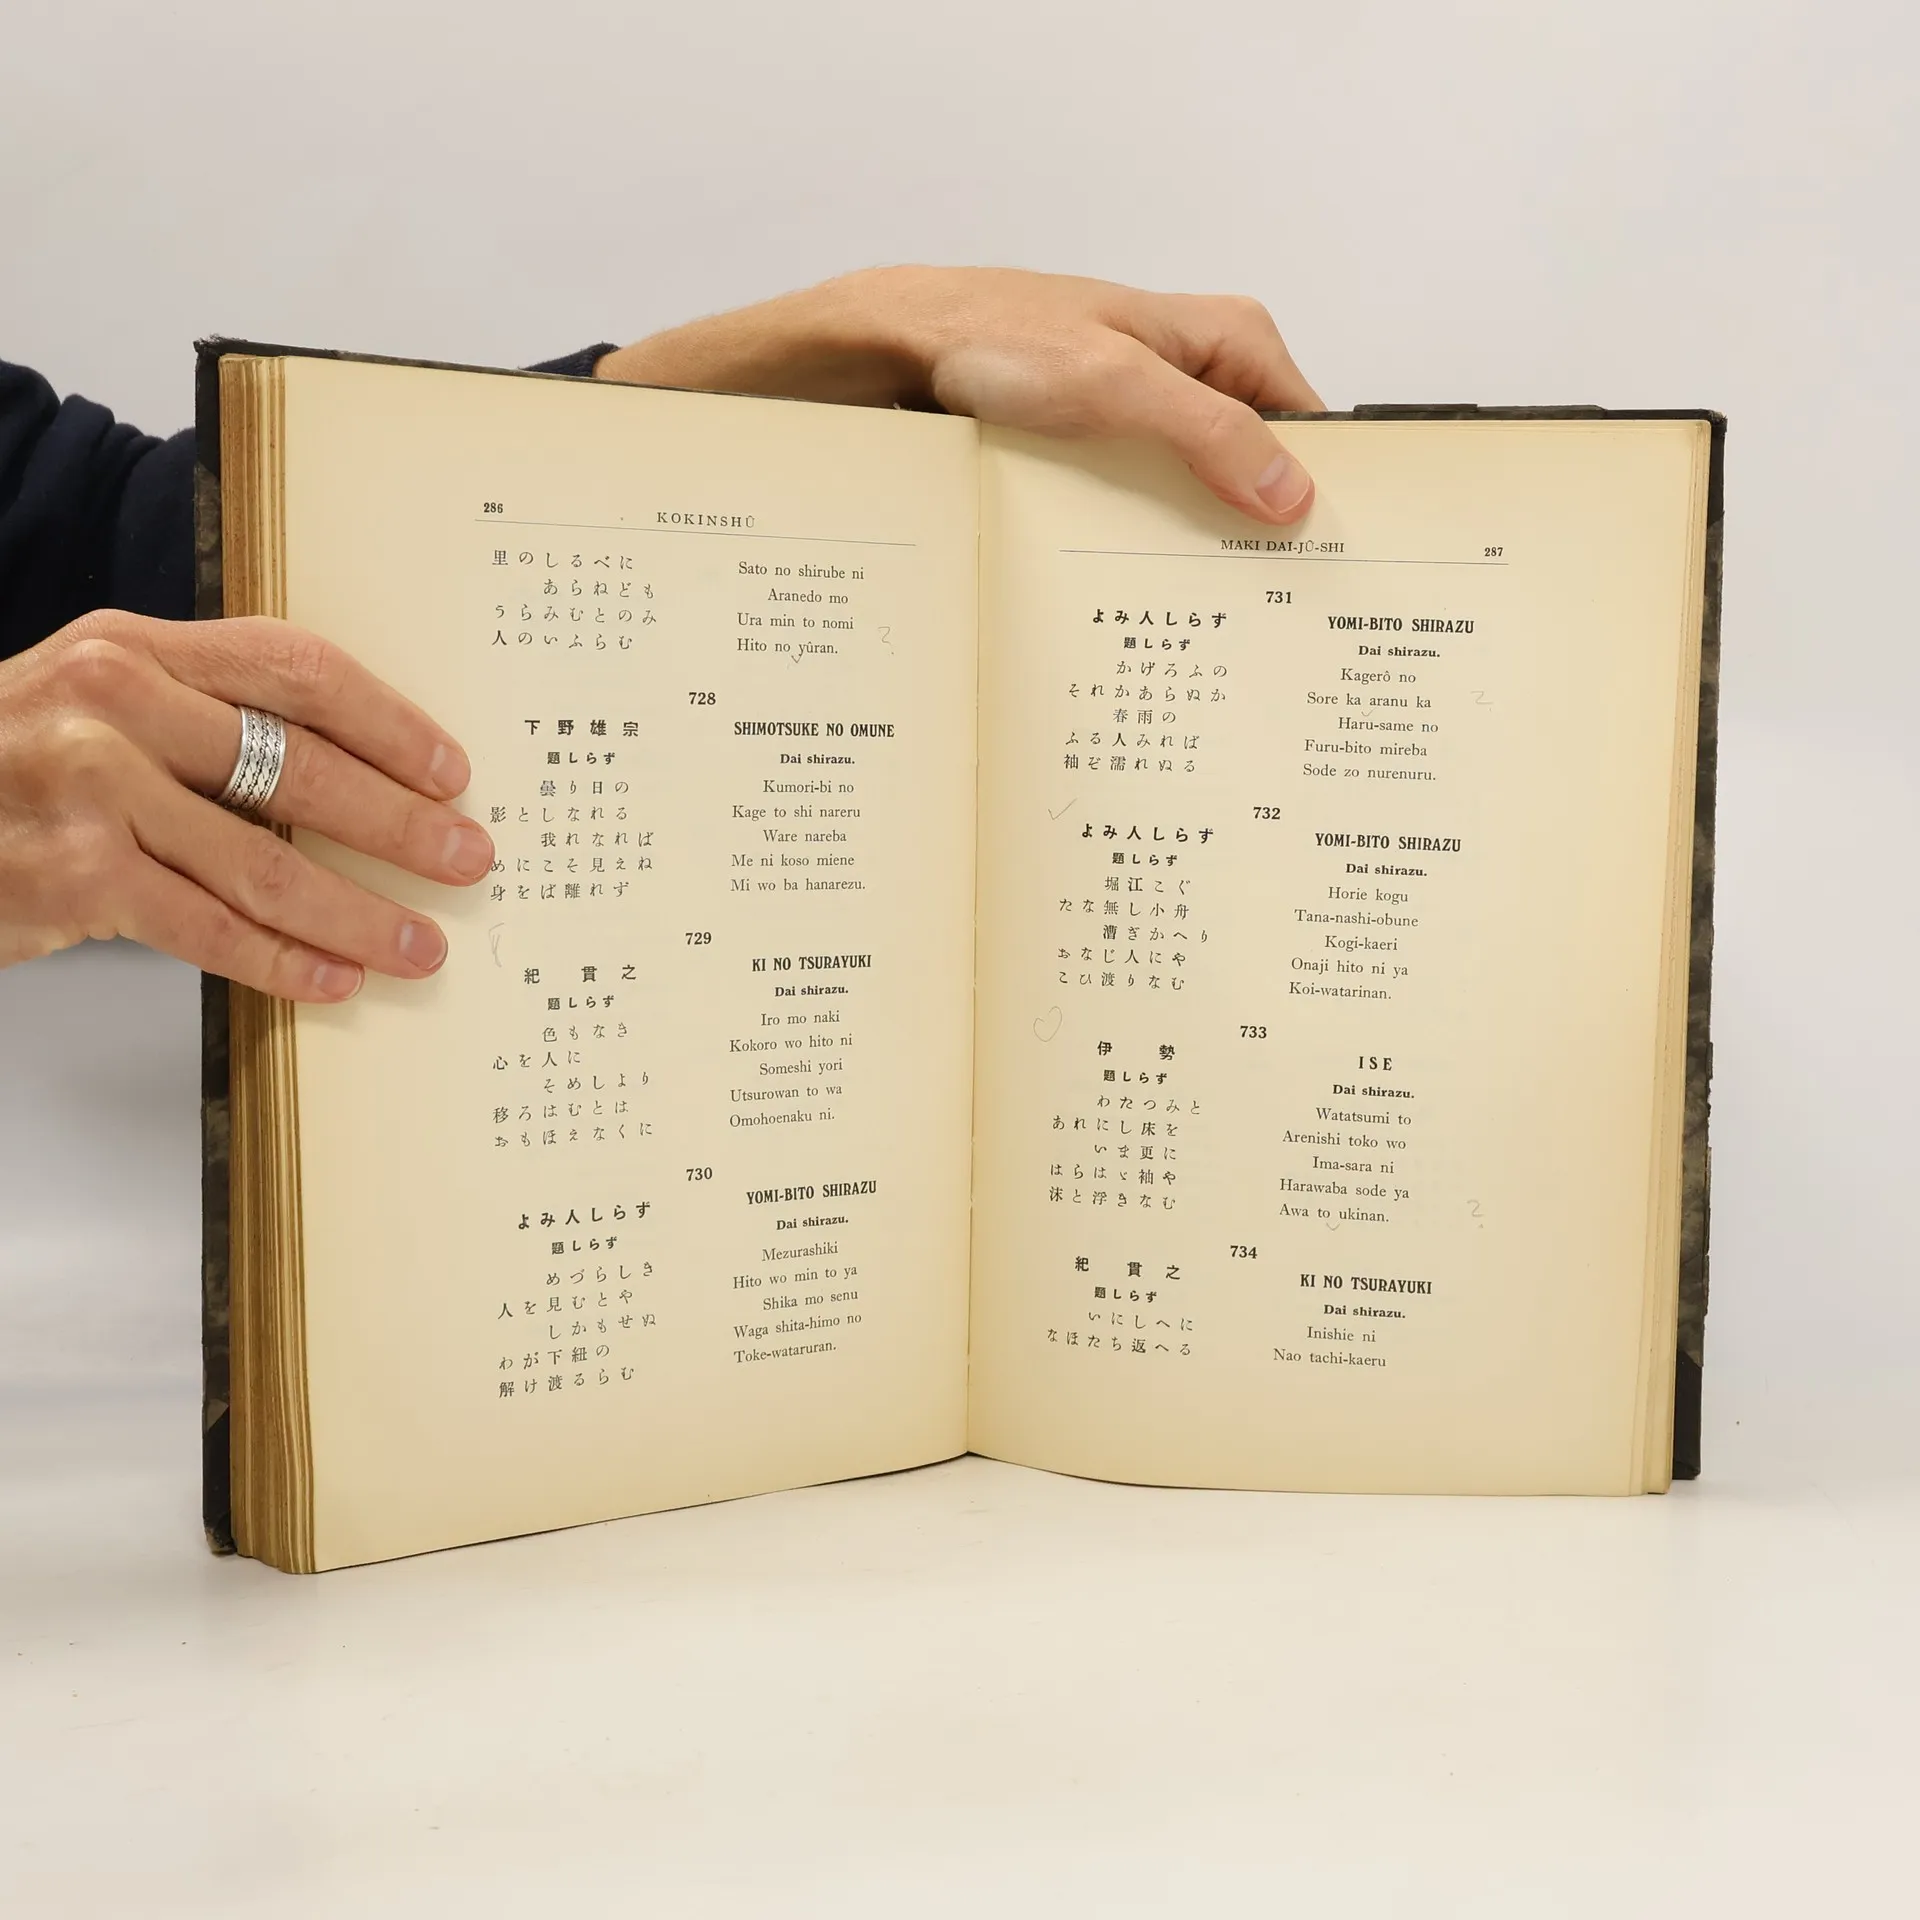 286
KOKINSHÛ
里のしるべに
あらねども
うらみむとのみ
人のいふらむ
Sato no shirube ni
Aranedo mo
Ura min to nomi
Hito no yûran.
?
728
下野雄宗
題しらず
曇り日の
影としなれる
我れなれば
めにこそ見えね
身をば離れず
SHIMOTSUKE NO OMUNE
Dai shirazu.
Kumori-bi no
Kage to shi nareru
Ware nareba
Me ni koso miene
Mi wo ba hanarezu.
729
紀 貫之
題しらず
色もなき
心を人に
そめしより
移ろはむとは
おもほえなくに
KI NO TSURAYUKI
Dai shirazu.
Iro mo naki
Kokoro wo hito ni
Someshi yori
Utsurowan to wa
Omohoenaku ni.
730
よみ人しらず
題しらず
めづらしき
人を見むとや
しかもせぬ
わが下紐の
解け渡るらむ
YOMI-BITO SHIRAZU
Dai shirazu.
Mezurashiki
Hito wo min to ya
Shika mo senu
Waga shita-himo no
Toke-wataruran.
MAKI DAI-JÛ-SHI
287
731
よみ人しらず
題しらず
かげろふの
それかあらぬか
春雨の
ふる人みれば
袖ぞ濡れぬる
YOMI-BITO SHIRAZU
Dai shirazu.
Kagerô no
Sore ka aranu ka
Haru-same no
Furu-bito mireba
Sode zo nurenuru.
?
732
よみ人しらず
題しらず
堀江こぐ
たな無し小舟
漕ぎかへり
おなじ人にや
こひ渡りなむ
YOMI-BITO SHIRAZU
Dai shirazu.
Horie kogu
Tana-nashi-obune
Kogi-kaeri
Onaji hito ni ya
Koi-watarinan.
733
伊 勢
題しらず
わたつみと
あれにし床を
いま更に
はらはゞ袖や
沫と浮きなむ
ISE
Dai shirazu.
Watatsumi to
Arenishi toko wo
Ima-sara ni
Harawaba sode ya
Awa to ukinan.
?
734
紀 貫之
題しらず
いにしへに
なほたち返へる
KI NO TSURAYUKI
Dai shirazu.
Inishie ni
Nao tachi-kaeru